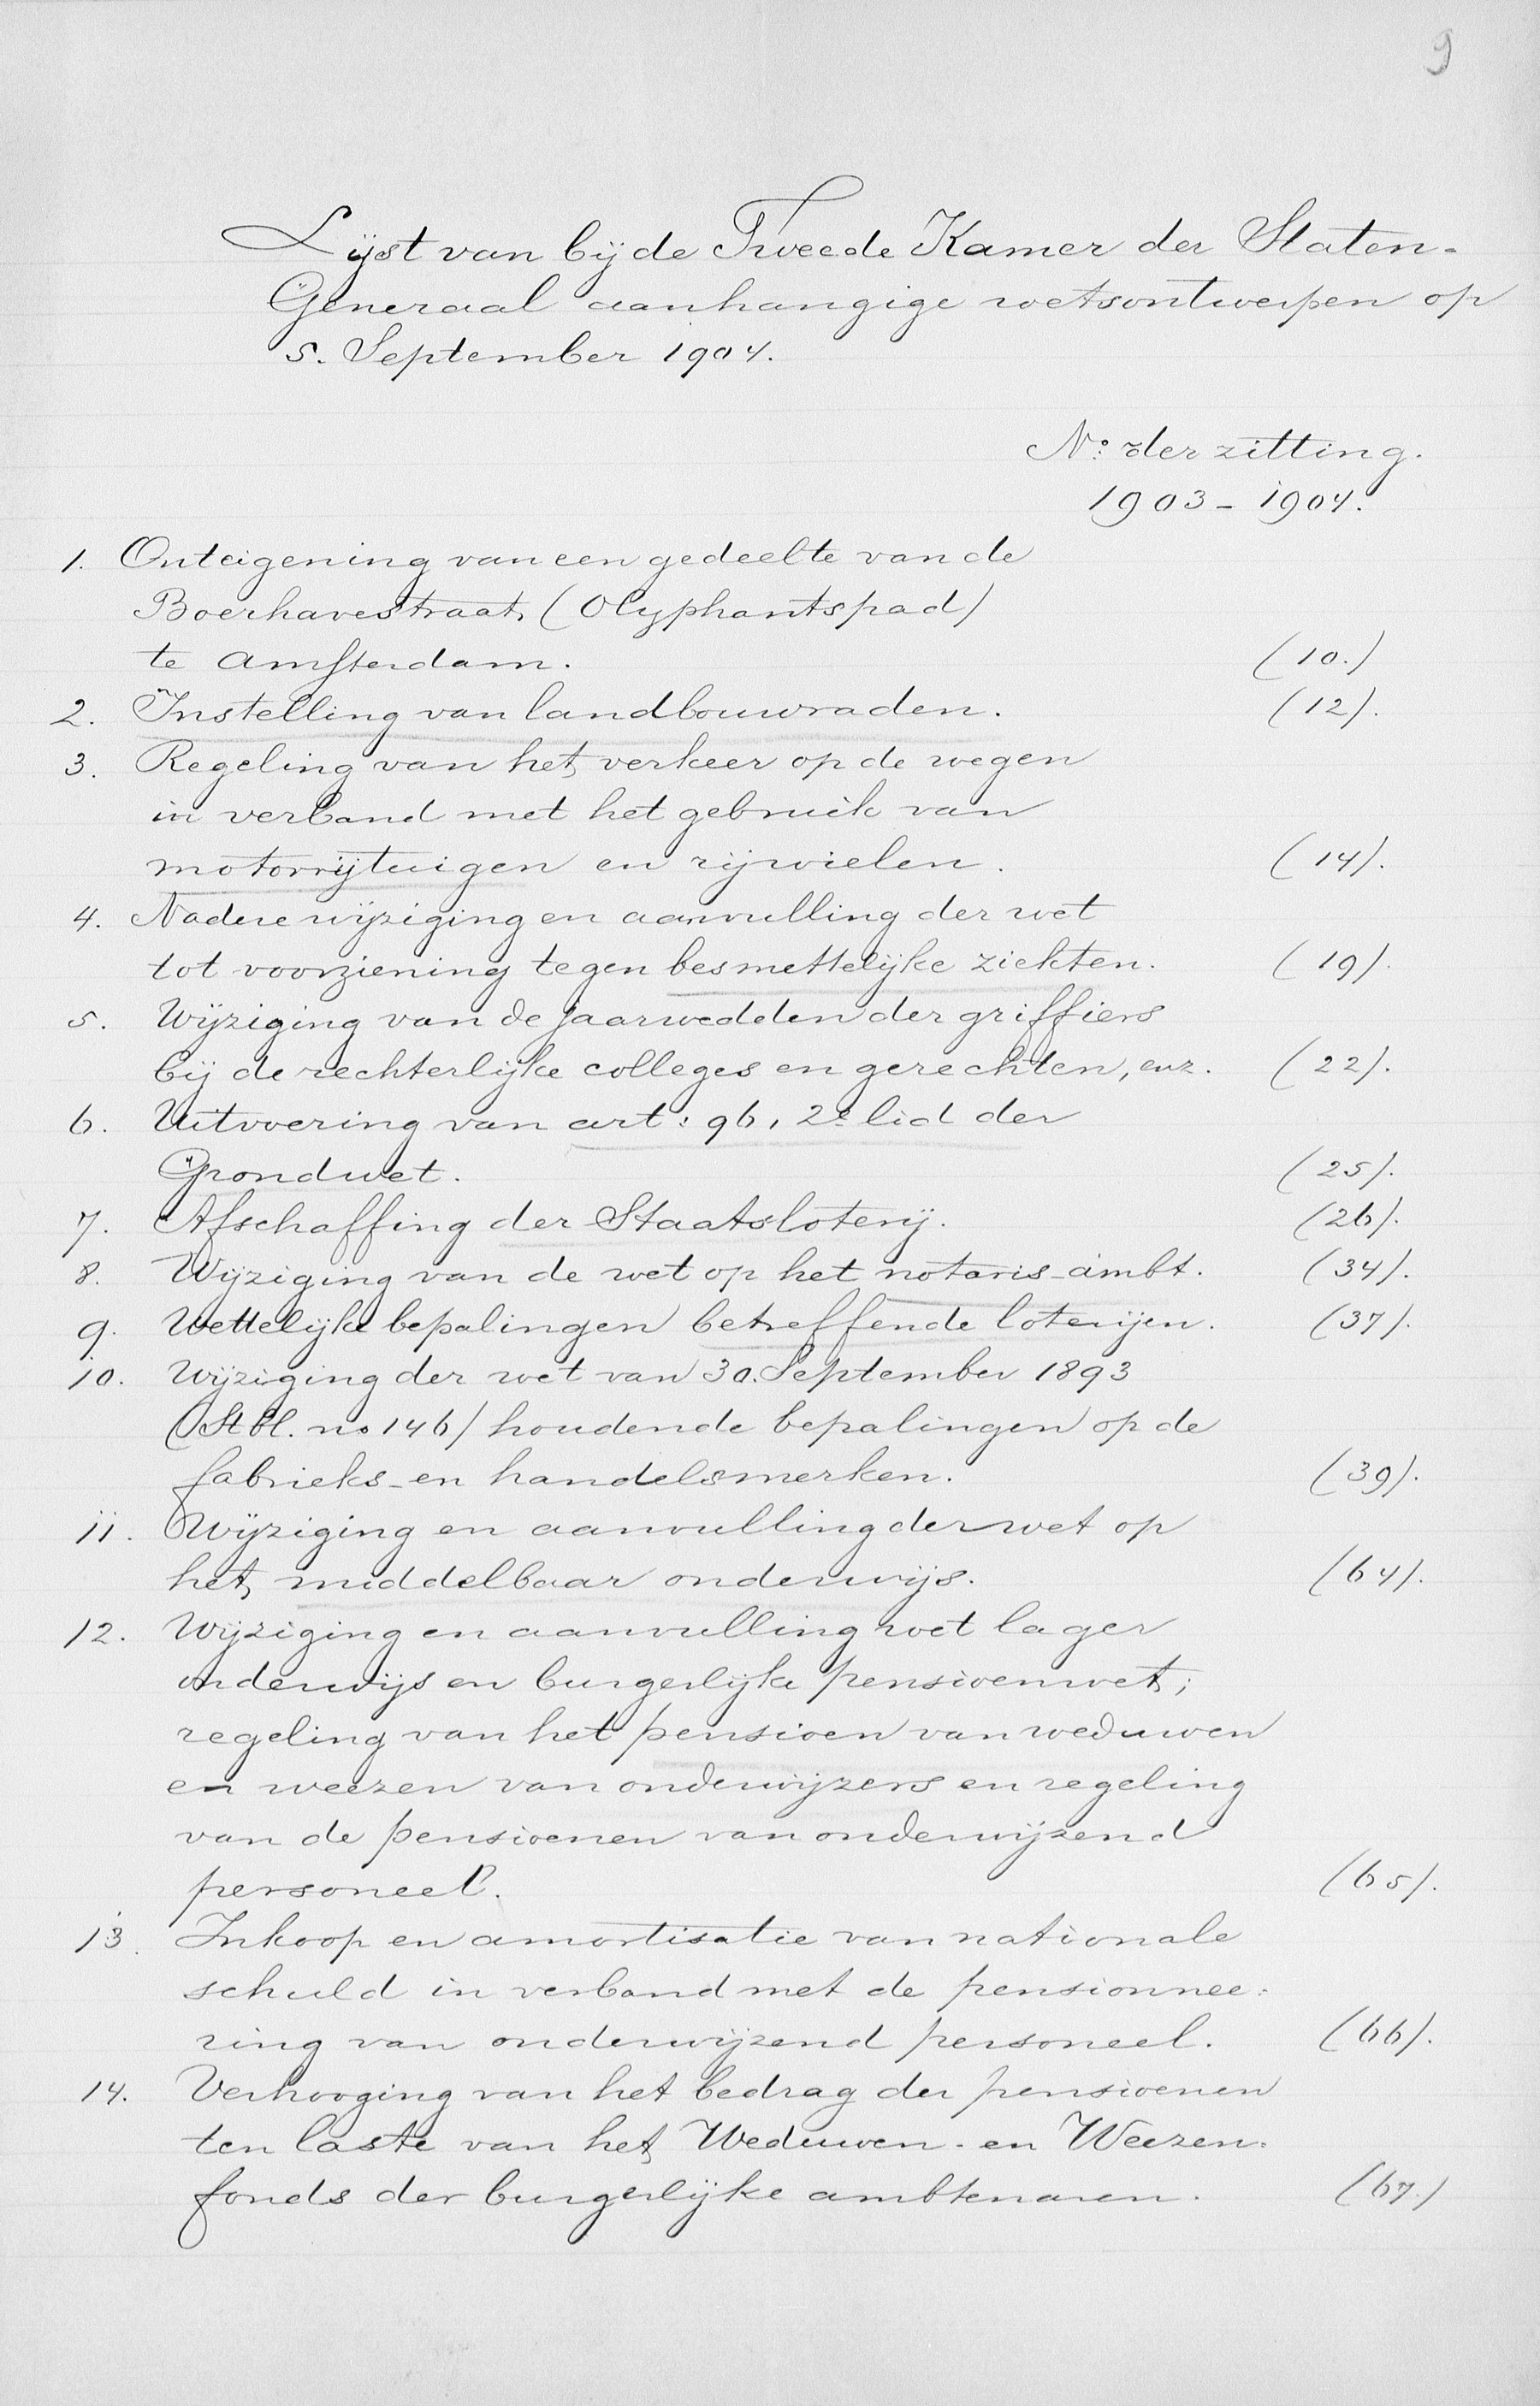 9
Lijst van bij de Tweede Kamer der Staten-
Generaal aanhangige wetsontwerpen op
5. September 1904.
No: der zitting.
1903-1904.
1. Onteigening van een gedeelte van de
Boerhavestraat (Olyphantspad)
te Amsterdam. (10.)
2. Instelling van landbouwraden. (12).
3. Regeling van het verkeer op de wegen
in verband met het gebruik van
motorrijtuigen en rijwielen. (14).
4. Nadere wijziging en aanvulling der wet
tot voorziening tegen besmettelijke ziekten. (19).
5. Wijziging van de jaarwedden der griffiers
bij de rechterlijke colleges en gerechten, enz. (22).
6. Uitvoering van art: 96, 2e lid der
Grondwet. (25).
7. Afschaffing der Staatsloterij. (26).
8. Wijziging van de wet op het notaris-ambt. (34).
9. Wettelijke bepalingen betreffende loterijen. (37).
10. Wijziging der wet van 30. September 1893
(Stbl. no 146) houdende bepalingen op de
fabrieks- en handelsmerken. (39).
11. Wijziging en aanvulling der wet op
het middelbaar onderwijs. (64).
12. Wijziging en aanvulling wet lager
onderwijs en burgerlijke pensioenwet;
regeling van het pensioen van weduwen
en weezen van onderwijzers en regeling
van de pensioenen van onderwijzend
personeel. (65).
13. Inkoop en amortisatie van nationale
schuld in verband met de pensionnee:
ring van onderwijzend personeel. (66).
14. Verhooging van het bedrag der pensioenen
ten laste van het Weduwen- en Weezen-
fonds der burgerlijke ambtenaren. (67.)